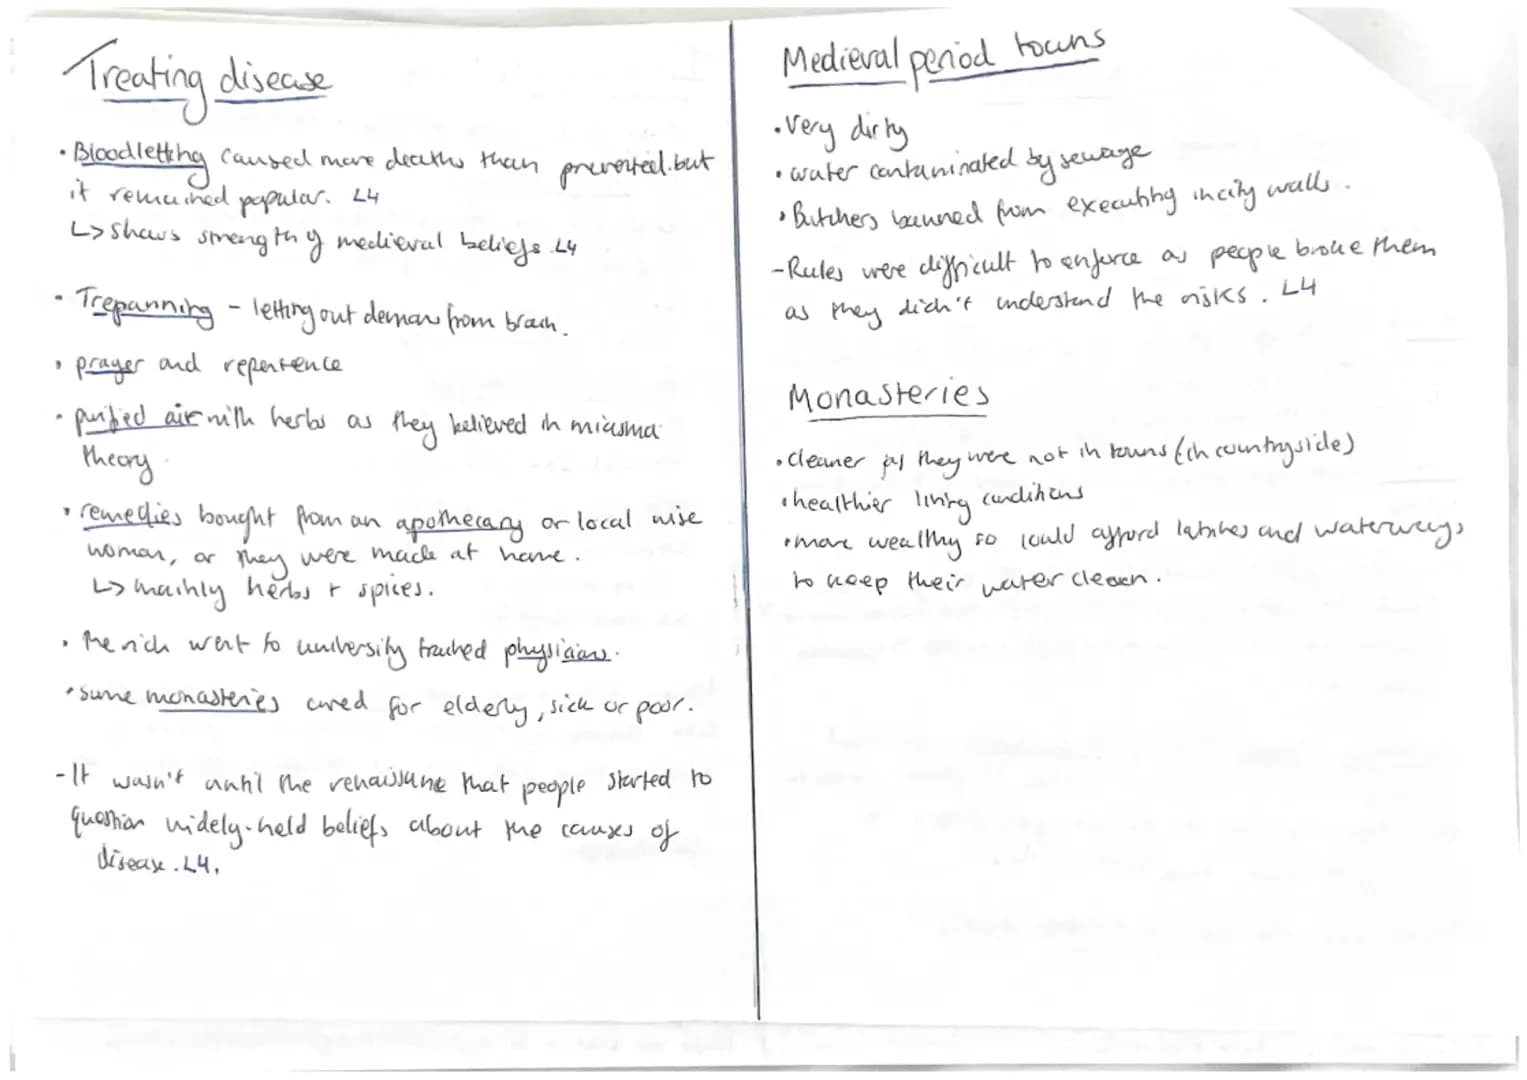 Treating disease
• Bloodletting caused more deaths than prevented. but
it remained popular. L4
↳ shows strength of medieval beliefs. L4
• Trepanning - letting out demons from brain.
• prayer and repentence
• purified air with herbs as they believed in miasma
theory.
• remedies bought from an apothecary or local wise
woman, or they were made at home.
↳ mainly herbs + spices.
• The rich went to university trained physicians.
• some monasteries cared for elderly, sick or poor.
- It wasn't until the renaissance that people started to
question widely-held beliefs about the causes of
disease. L4.
Medieval period towns
• Very dirty
• water contaminated by sewage
• Butchers banned from executing in city walls.
- Rules were difficult to enforce as people broke them
as they didn't understand the risks. L4
Monasteries
• cleaner as they were not in towns (in countryside)
• healthier living conditions
• more wealthy so could afford latrines and waterways
to keep their water clean.